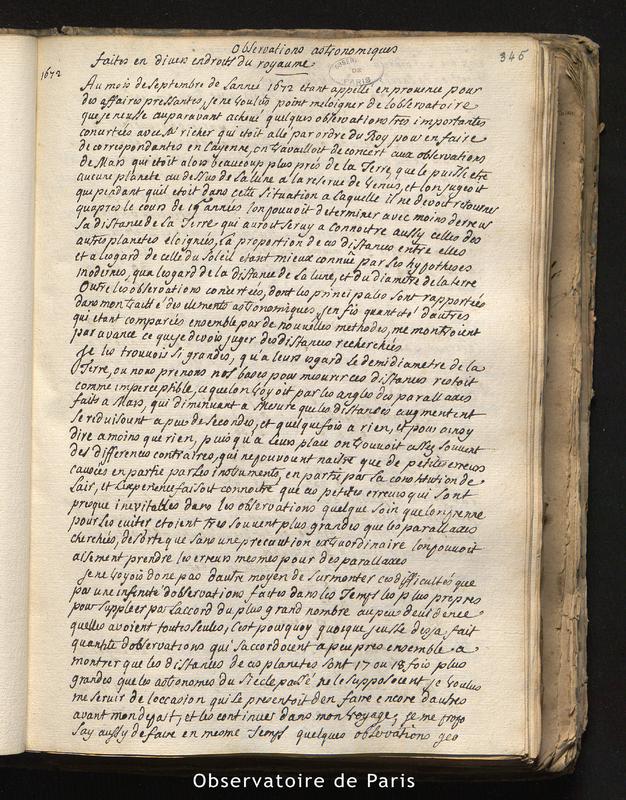 Observations astronomiques
345
faites en divers endroits du royaume
OBSERV
DE
PARIS
1672
Au mois de Septembre de Lanneé 1672 etant appellé en provence pour
des affaires pressantes, Je ne voulus point m'eloigner de lobservatoire
que je neusse auparavant achevé quelques observations tres importantes
concertées avec Mr richer qui étoit allé par ordre du Roy pour en faire
de correspondantes en Cayenne, on travailloit de concert aux observations
de Mars qui étoit alors beaucoup plus prés de la Terre, que le puisse etre
aucune planete au dessus de Sa Lune a la reserve de venus, et lon jugeoit
que pendant quil etoit dans cette situation a laquelle il ne devoit retourner
quapres le cours de ans lon pouvoit determiner avec moins derreur
Sa distance de la Terre qui auroit servy a connoitre aussy celles des
autres planetes eloignées, La proportion de ces distances entre elles
et a legard de celle du Soleil etant mieux connüe par les hypotheses
modernes, qua legard de la distance de La lune, et du diametre de la terre
Outre les observations concertées, dont les principales sont rapportées
dans mon traitté des elements astronomiques, Jen fis quantité d'autres
qui etant comparées ensemble par de nouvelles methodes, me montroient
par avance ce que je devois juger des distances recherchées
Je les trouvois si grandes, qu'a leurs egard le demidiametre de la
Terre, ou nous prenons nos bases pour mesurer ces distances restoit
comme imperceptible, ce quelon voyoit par les angles des parallaxes
faits a Mars, qui diminuant a mesure que les distances augmentent
se reduisoient a peu de secondes, et quelquefois a rien, et pour ainsy
dire a moins que rien, puis qu'a leurs place on trouvoit assez souvent
des differences contraires, qui ne pouvoient naitre que de petites erreurs
causées en partie par les instruments, en partie par la constitution de
Lair, et Lexperience faisoit connoitre que ces petites erreurs qui sont
presque inevitables dans les observations quelque soin que lon prenne
pour les eviter etoient tres souvent plus grandes que les parallaxes
cherchées, de sorte que sans une precaution extraordinaire lon pouvoit
aisement prendre les erreurs mesmes pour des parallaxes
Je ne voyois donc pas dautre moyen de surmonter ces difficultés que
par une infinité dobservations faites dans les Temps les plus propres
pour suppleer par Laccord du plus grand nombre au peu devidence
quelles avoient toutes seules, C'est pourquoy quoique jeusse desja fait
quantité dobservations qui saccordoient a peu pres ensemble a
montrer que les distances de ces planetes sont 17 ou 18 fois plus
grandes que les astronomes du Siecle passé ne le supposoient je voulus
me servir de loccasion qui se presentoit den faire encore dautres
avant mon depart, et les continuer dans mon voyage, Je me propo
say aussy de faire en mesme Temps quelques observations geo
Observatoire de Paris